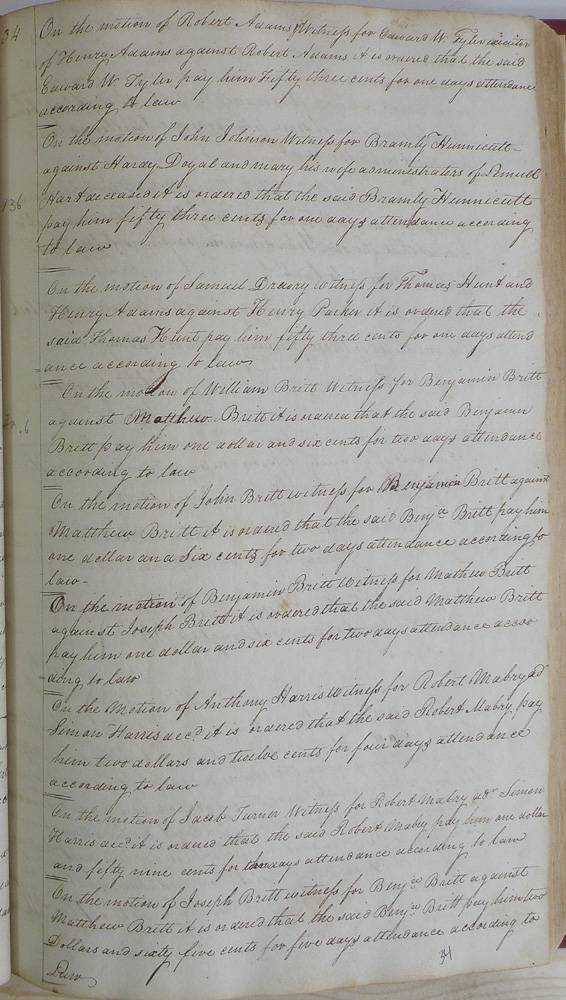 34
On the motion of Robert Adams Witness for Edward W. Tyler
of Henry Adams against Robert Adams it is ordered that the said
Edward W. Tyler pay him Fifty three cents for one days attendance
according to law
On the motion of John Johnson Witness for Bramly Hunnicutt
against Hardy Doyal and mary his wife administraters of Lemuel
Hart deceased it is ordered that the said Bramly Hunnicutt
136
pay him fifty three cents for one days attendance according
to law
On the motion of Samuel Drewry witness for Thomas Hunt and
Henry Adams against Henry Parker it is ordered that the
said Thomas Hunt pay him fifty three cents for one days attend
ance according to law
On the motion of William Britt Witness for Benjamin Britt
against Matthew Britt it is ordered that the said Benjamin
Britt pay him one dollar and six cents for two days attendance
according to law
On the motion of John Britt witness for Benjamin Britt against
Matthew Britt it is ordered that the said Benja Britt pay him
one dollar and six cents for two days attendance according to
law-
On the motion of Benjamin Britt Witness for Mathew Britt
against Joseph Britt it is ordered that the said Matthew Britt
pay him one dollar and six cents for two days attendance accor
ding to law
On the Motion of Anthony Harris Witness for Robert Mabry ads
Simon Harris decd it is ordered that the said Robert Mabry pay
him two dollars and twelve cents for four days attendance
according to law
On the motion of Jacob Turner Witness for Robert Mabry adsr Simon
Harris decd it is ordered that the said Robert Mabry pay him one dollar
and fifty nine cents for three days attendance according to law
On the motion of Joseph Britt witness for Benja Britt against
Matthew Britt it is ordered that the said Benja Britt pay him two
Dollars and sixty five cents for five days attendance according to
Law
34